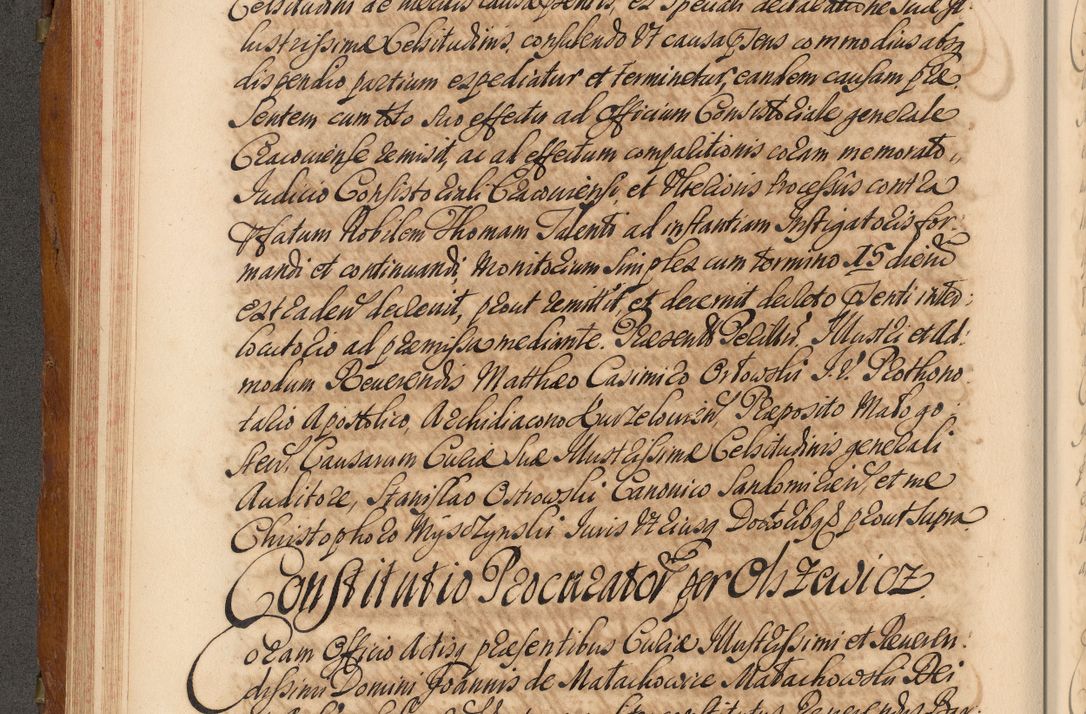 Celsitudini de meritis causæ præntis, ex speciali declaratione Suæ Il-
lustrissimæ Celsitudinis, consulendo Vt causa præsens commodius absq
dispendio partium expediatur et terminetur, eandem causam præ
sentem cum toto suo effectu ad Officium Consistoriale generale
Cracouiense remisit, ac ad effectum compalitionis coram memorato,,
Iudicio Consistoriali Cracouiensi, et Vlterioris Processus contra
Præfatum Nobilem Thomam Talenti ad instantiam Instigatoris for:
mandi et continuandi, Monitorium simplex cum termino 15 dierũ
extraden decreuit, prout remittit, et decernit decreto præsenti inter:
locutorio ad præmissa mediante. Præsentib Perillri. Illustri et Ad:
modum Reuerendis Matthæo Casimiro Orłowski I. V. Prothono
tario Apostolico, Archidiacono Kurzelouien, Præposito Małogo
stien. Causarum Curiæ Suæ Illustrissimæ Celsitudinis generali
Auditore, Stanislao Ostrowski Canonico Sandomirien, et me
Christophoro Mysczynski Iuris Vtriusq Doctoribq prout supra
Constitutio Procurator per Olszewicz.
Coram Officio Actisq præsentibus Curiæ Illustrissimi et Reueren:
dissimi Domini Joannis de Małachowice Małachowski Dei